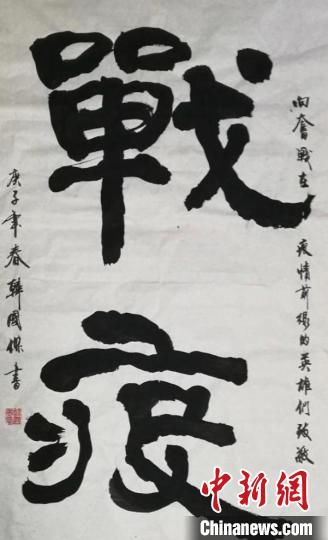 向奋戰在疫情前線的英雄们致敬
戰疫
庚子年春韓國保書
中新网
www.
Chinanews.com